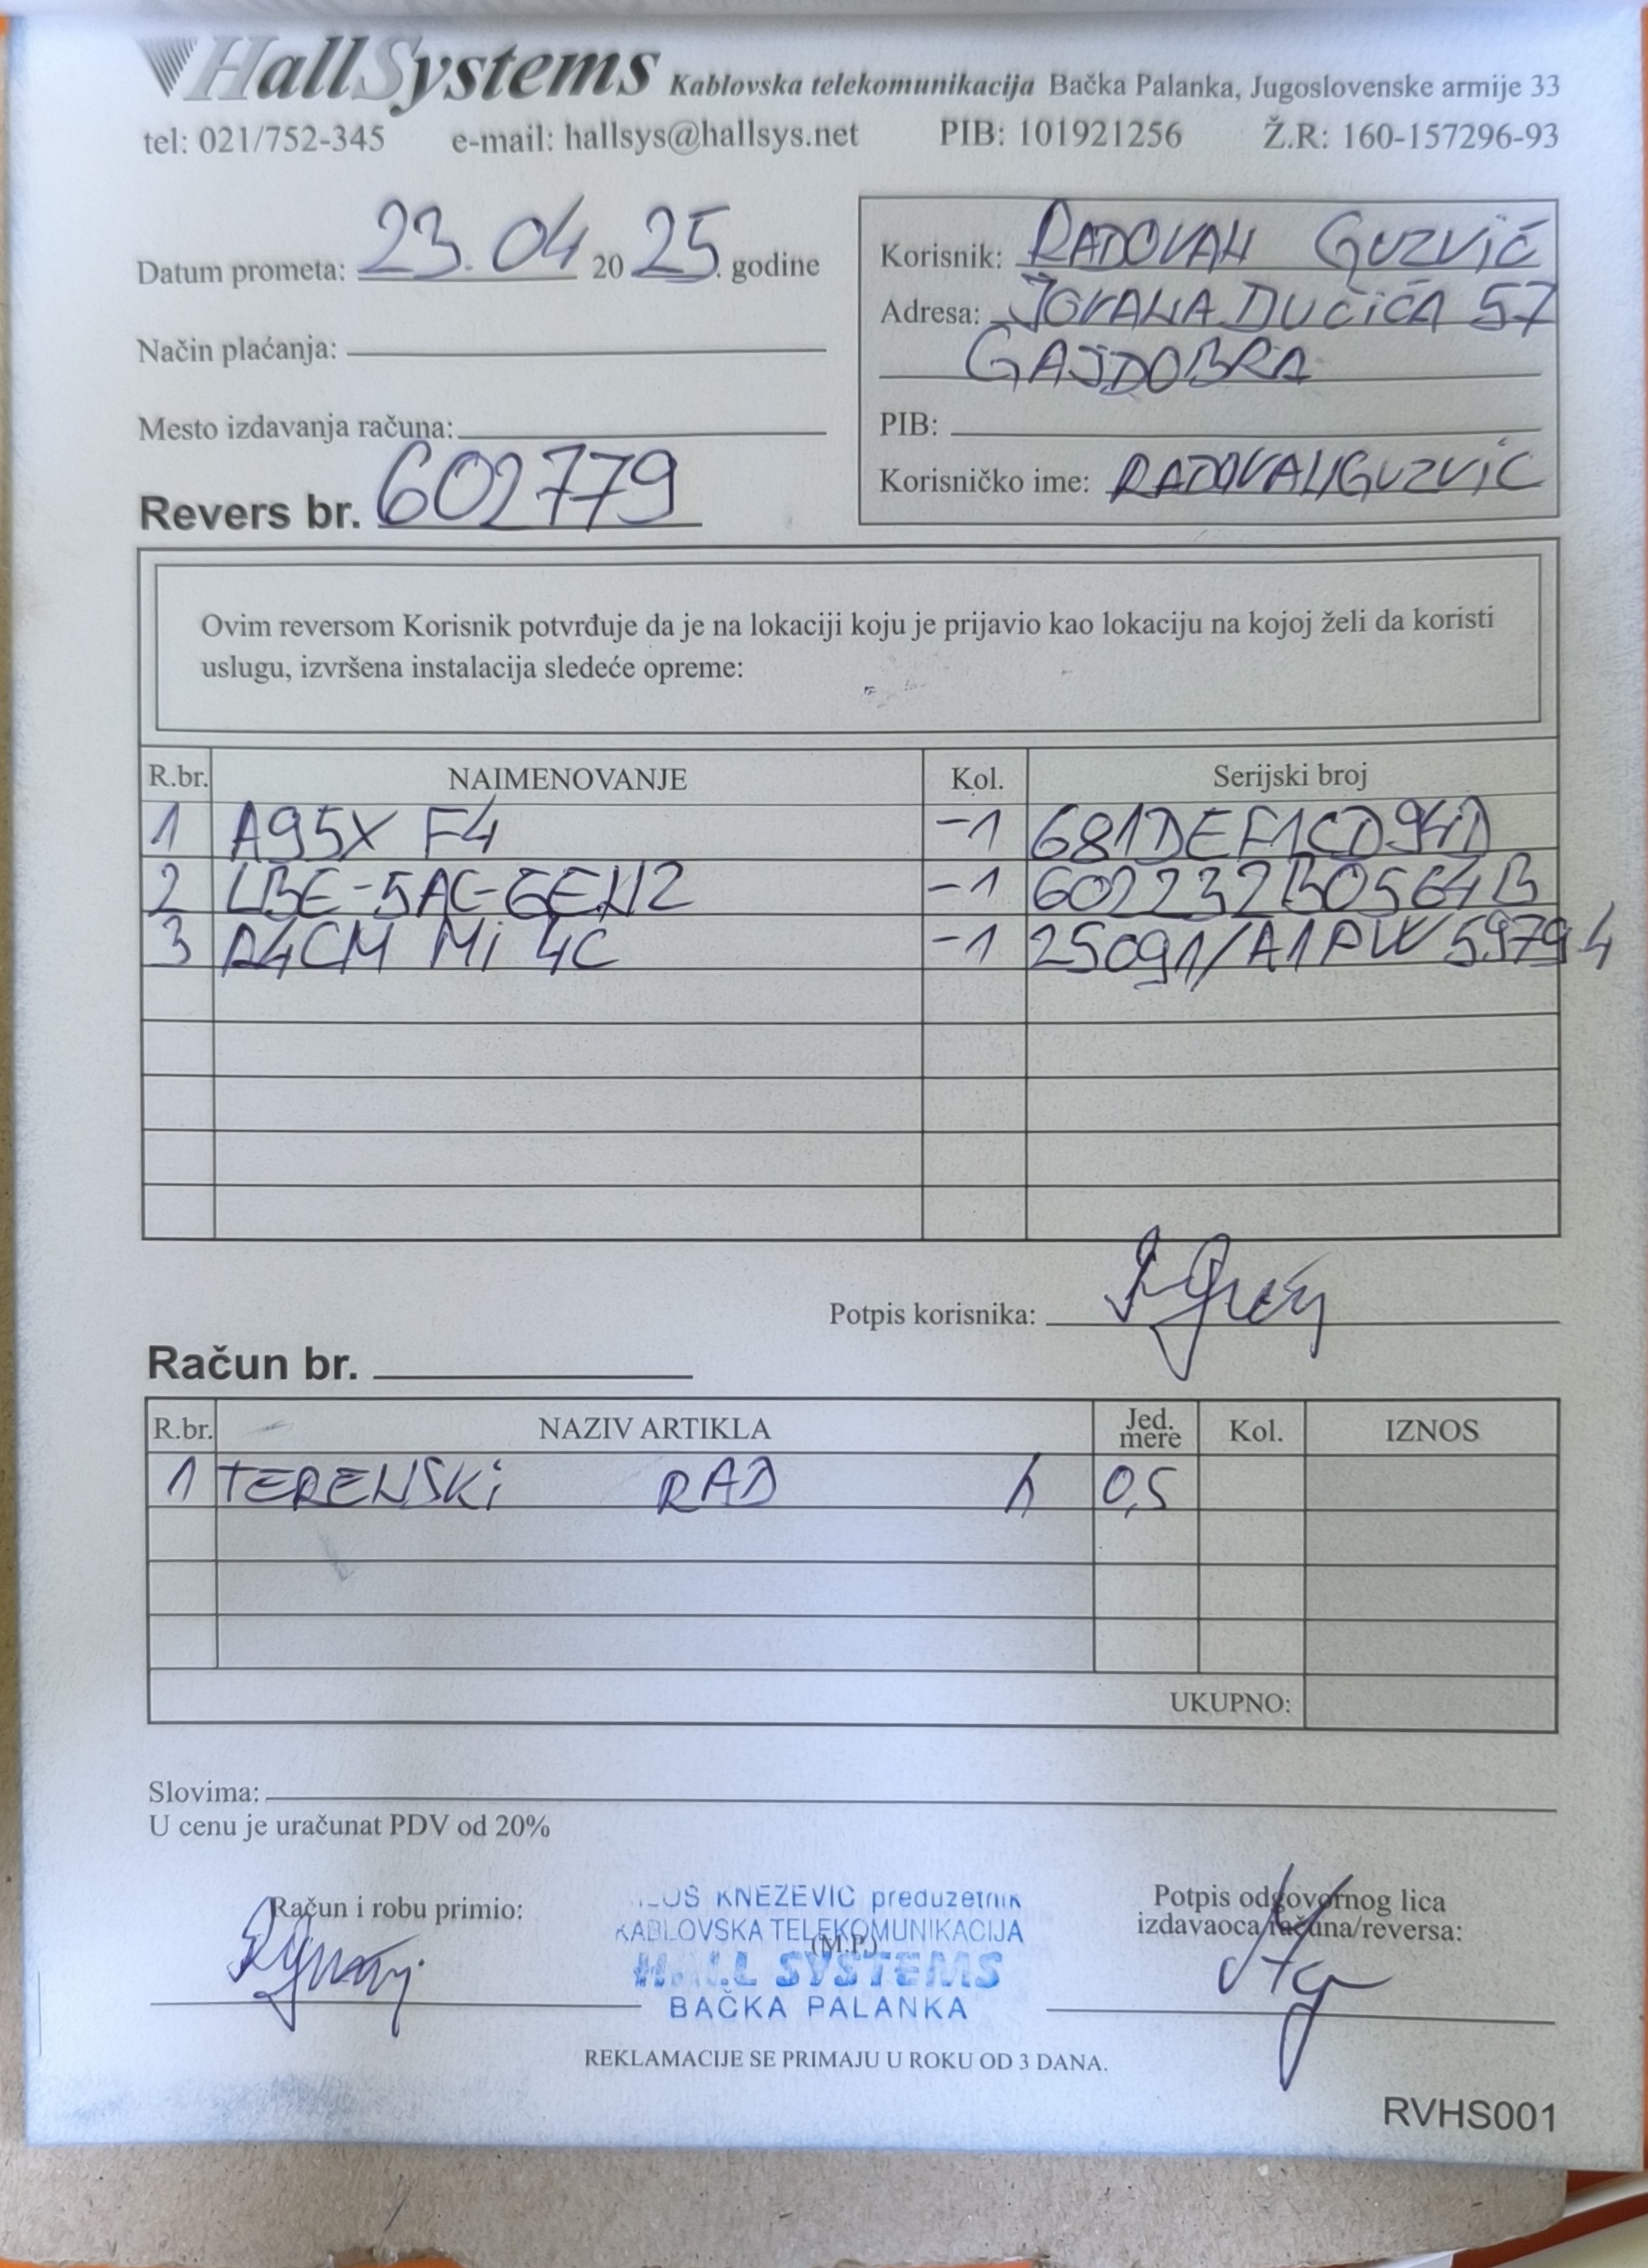 HallSystems Kablovska telekomunikacija Bačka Palanka, Jugoslovenske armije 33
tel: 021/752-345 e-mail: hallsys@hallsys.net PIB: 101921256 Ž.R: 160-157296-93
Datum prometa: 23.04 20 25. godine
Način plaćanja:
Mesto izdavanja računa:
Revers br. 602779
Korisnik: RADOVAN GUZVIĆ
Adresa: JOVANA DUČIĆA 57
GAJDOBRA
PIB:
Korisničko ime: RADOVANGUZVIC
Ovim reversom Korisnik potvrđuje da je na lokaciji koju je prijavio kao lokaciju na kojoj želi da koristi
uslugu, izvršena instalacija sledeće opreme:
R.br. NAIMENOVANJE Kol. Serijski broj
1 A95X F4 -1 681DEF1CD94D
2 LBE-5AC-GEN2 -1 602232B0564B
3 R4CM Mi 4C -1 25091/A1PW59794
Potpis korisnika:
Račun br.
R.br. NAZIV ARTIKLA Jed. mere Kol. IZNOS
1 TERENSKI RAD h 0,5
UKUPNO:
Slovima:
U cenu je uračunat PDV od 20%
Račun i robu primio:
KNEZEVIC preduzetnik
KABLOVSKA TELEKOMUNIKACIJA
(M.P.)
HALL SYSTEMS
BAČKA PALANKA
Potpis odgovornog lica
izdavaoca računa/reversa:
REKLAMACIJE SE PRIMAJU U ROKU OD 3 DANA.
RVHS001